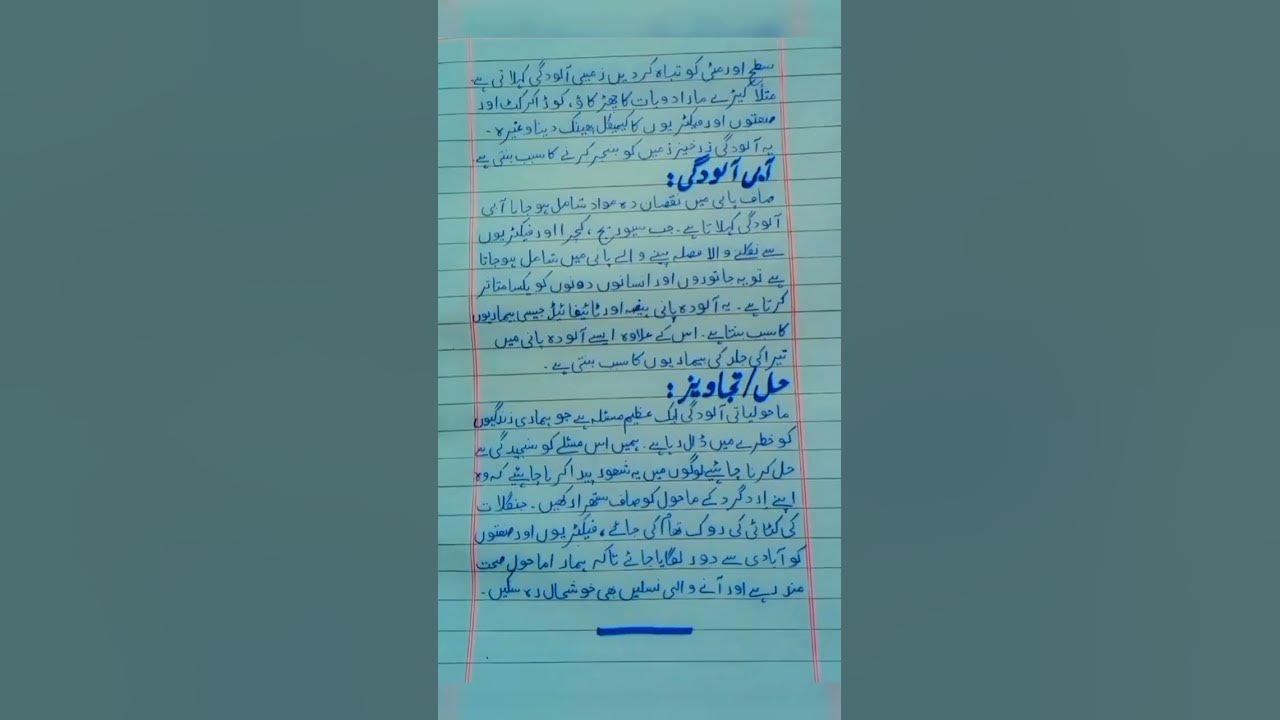 سطح اور مٹی کو تباہ کر دیں زمینی آلودگی کہلاتی ہے۔
مثلاً کیڑے مار ادویات کا چھڑکاؤ، کوڑا کرکٹ اور
صنعتوں اور فیکٹریوں کا کیمیکل پھینک دینا وغیرہ۔
یہ آلودگی زرخیز زمین کو بنجر کرنے کا سبب بنتی ہے
آبی آلودگی:
صاف پانی میں نقصان دہ مواد شامل ہو جانا آبی
آلودگی کہلاتا ہے۔ جب سیوریج، کچرا اور فیکٹریوں
سے نکلنے والا فضلہ پینے والے پانی میں شامل ہوجاتا
ہے تو یہ جانوروں اور انسانوں دونوں کو یکسا متاثر
کرتا ہے۔ یہ آلودہ پانی ہیضہ اور ٹائیفائیڈ جیسی بیماریوں
کا سبب بنتا ہے۔ اس کے علاوہ ایسے آلودہ پانی میں
تیراکی جلد کی بیماریوں کا سبب بنتی ہے۔
حل/تجاویز:
ماحولیاتی آلودگی ایک عظیم مسئلہ ہے جو ہماری زندگیوں
کو خطرے میں ڈال رہا ہے۔ ہمیں اس مسئلے کو سنجیدگی سے
حل کرنا چاہئیے لوگوں میں یہ شعور پیدا کرنا چاہئیے کہ وہ
اپنے اردگرد کے ماحول کو صاف ستھرا رکھیں۔ جنگلات
کی کٹائی کی روک تھام کی جائے، فیکٹریوں اور صنعتوں
کو آبادی سے دور لگایا جائے تاکہ ہمارا ماحول صحت
مند رہے اور آنے والی نسلیں بھی خوشحال رہ سکیں۔